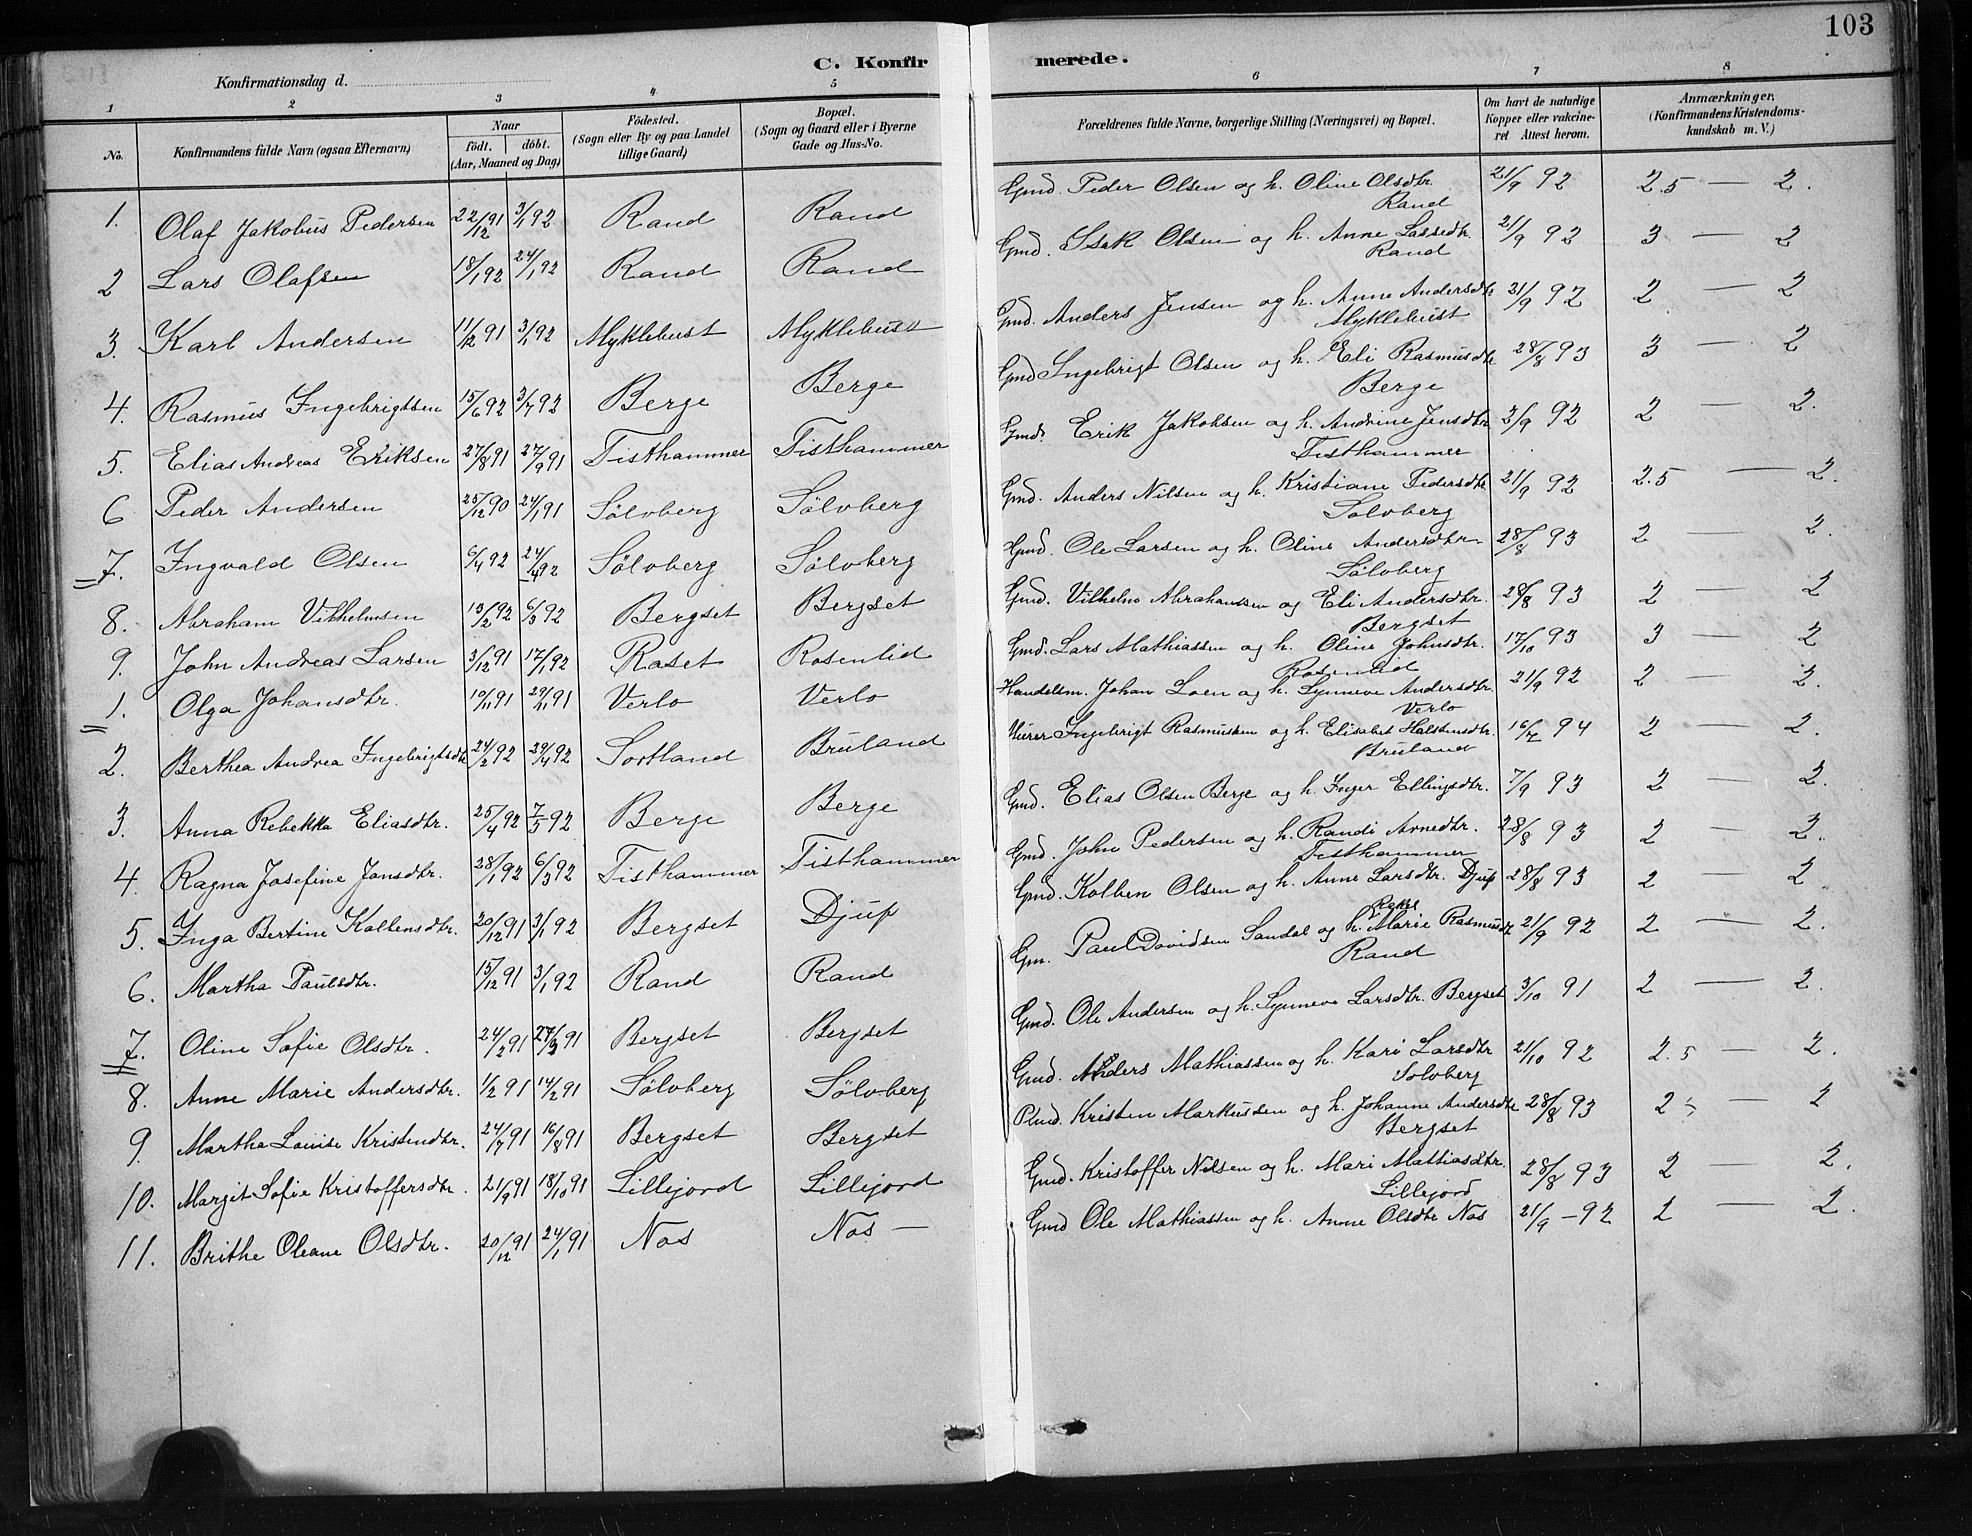 103
C. Konfirmerede.
Konfirmationsdag d.
1 2 3 4 5 6 7 8
No. Konfirmandens fulde Navn (ogsaa Efternavn) Naar født. døbt. (Aar, Maaned og Dag) Fødested. (Sogn eller By og paa Landet tillige Gaard) Bopæl. (Sogn og Gaard eller i Byerne Gade og Hus-No. Forældrenes fulde Navne, borgerlige Stilling (Næringsvei) og Bopæl. Om havt de naturlige Kopper eller vakcineret. Attest herom. Anmærkninger, (Konfirmandens Kristendomskundskab m. V.)
1. Olaf Jakobus Pedersen 22/12 91 3/1 92 Rand Rand Gmd. Peder Olsen og h. Oline Olsdtr. Rand 21/9 92 2.5 — 2.
2 Lars Olafsen 18/1 92 24/1 92 Rand Rand Gmd. Isak Olsen og h. Anne Lassedtr. Rand 21/9 92 3 — 2
3. Karl Andersen 11/12 91 3/1 92 Myklebust Myklebust Gmd. Anders Jensen og h. Anne Andersdtr Myklebust 21/9 92 2 — 2
4. Rasmus Ingebrigtsen 15/6 92 3/7 92 Berge Berge Gmd Ingebrigt Olsen og h. Eli Rasmusdtr Berge 28/8 93 3 — 2
5. Elias Andreas Eriksen 27/8 91 27/9 91 Tisthammer Tisthammer Gmd. Erik Jakobsen og h. Andrine Jensdtr. Tisthammer 2/9 92 2 — 2.
6 Peder Andersen 25/12 90 24/1 91 Sölvberg Sölvberg Gmd. Anders Nilsen og h. Kristiane Pedersdtr Solvberg 21/9 92 2.5 — 2.
7. Ingvald Olsen 6/4 92 24/4 92 Sölvberg Sölvberg Gmd. Ole Larsen og h. Oline Andersdtr Sölvberg 28/8 93 2 — 2.
8. Abraham Vilhelmsen 13/2 92 6/3 92 Bergset Bergset Gmd. Vilhelm Abrahamsen og Eli Andersdtr. Bergset 28/8 93 2 — 2
9. John Andreas Larsen 3/12 91 17/1 92 Raset Rosenlid Gmd. Lars Mathiassen og h. Oline Johnsdtr. Rosenlid 17/10 93 3 — 2
1. Olga Johansdtr. 10/11 91 29/11 91 Verlo Verlo Handelsm. Johan Loen og h. Synneve Andersdtr. Verlo 21/9 92 2 — 2.
2. Berthea Andrea Ingebrigtsdtr 24/2 92 29/4 92 Sortland Bruland Ingebrigt Rasmussen og h. Elisabet Halstensdtr. Bruland 16/7 94 2 — 2.
3. Anna Rebekka Eliasdtr. 25/4 92 7/5 92 Berge Berge Gmd. Elias Olsen Berge og h. Inger Ellingsdtr. 7/9 93 2 — 2.
4. Ragna Josefine Jonsdtr. 28/1 92 6/3 92 Tisthammer Tisthammer Gmd. John Pedersen og h. Randi Arnedtr. Tisthammer 28/8 93 2 — 2.
5. Inga Bertine Kolbensdtr. 20/12 91 3/1 92 Bergset Djup Gmd. Kolben Olsen og h. Anne Larsdtr. Djup 28/8 93 2 — 2
6. Martha Paulsdtr. 15/12 91 3/1 92 Rand Rand Gm. Paul Davidsen Sandal og h. Marie Rasmusdtr Rand 21/9 92 2 — 2.
7. Oline Sofie Olsdtr. 24/2 91 27/3 91 Bergset Bergset Gmd. Ole Andersen og h. Synneve Larsdtr. Bergset 3/10 91 2 — 2.
8. Anne Marie Andersdtr. 1/2 91 14/2 91 Sölvberg Sölvberg Gmd. Anders Mathiassen og h. Kari Larsdtr Solvberg 21/10 92 2.5 — 2.
9. Martha Louise Kristendtr. 24/7 91 16/8 91 Bergset Bergset Plmd. Kristen Markussen og h. Johanne Andersdtr Bergset 28/8 93 2 — 2
10. Margit Sofie Kristoffersdtr. 21/9 91 18/10 91 Lillejord Lillejord Gmd. Kristoffer Nilsen og h. Mari Mathiasdtr. Lillejord 28/8 93 2 — 2.
11. Brithe Oleane Olsdtr. 20/12 91 24/1 91 Nos Nos — Gmd Ole Mathiassen og h. Anne Olsdtr Nos 21/9 — 92 2 — 2.